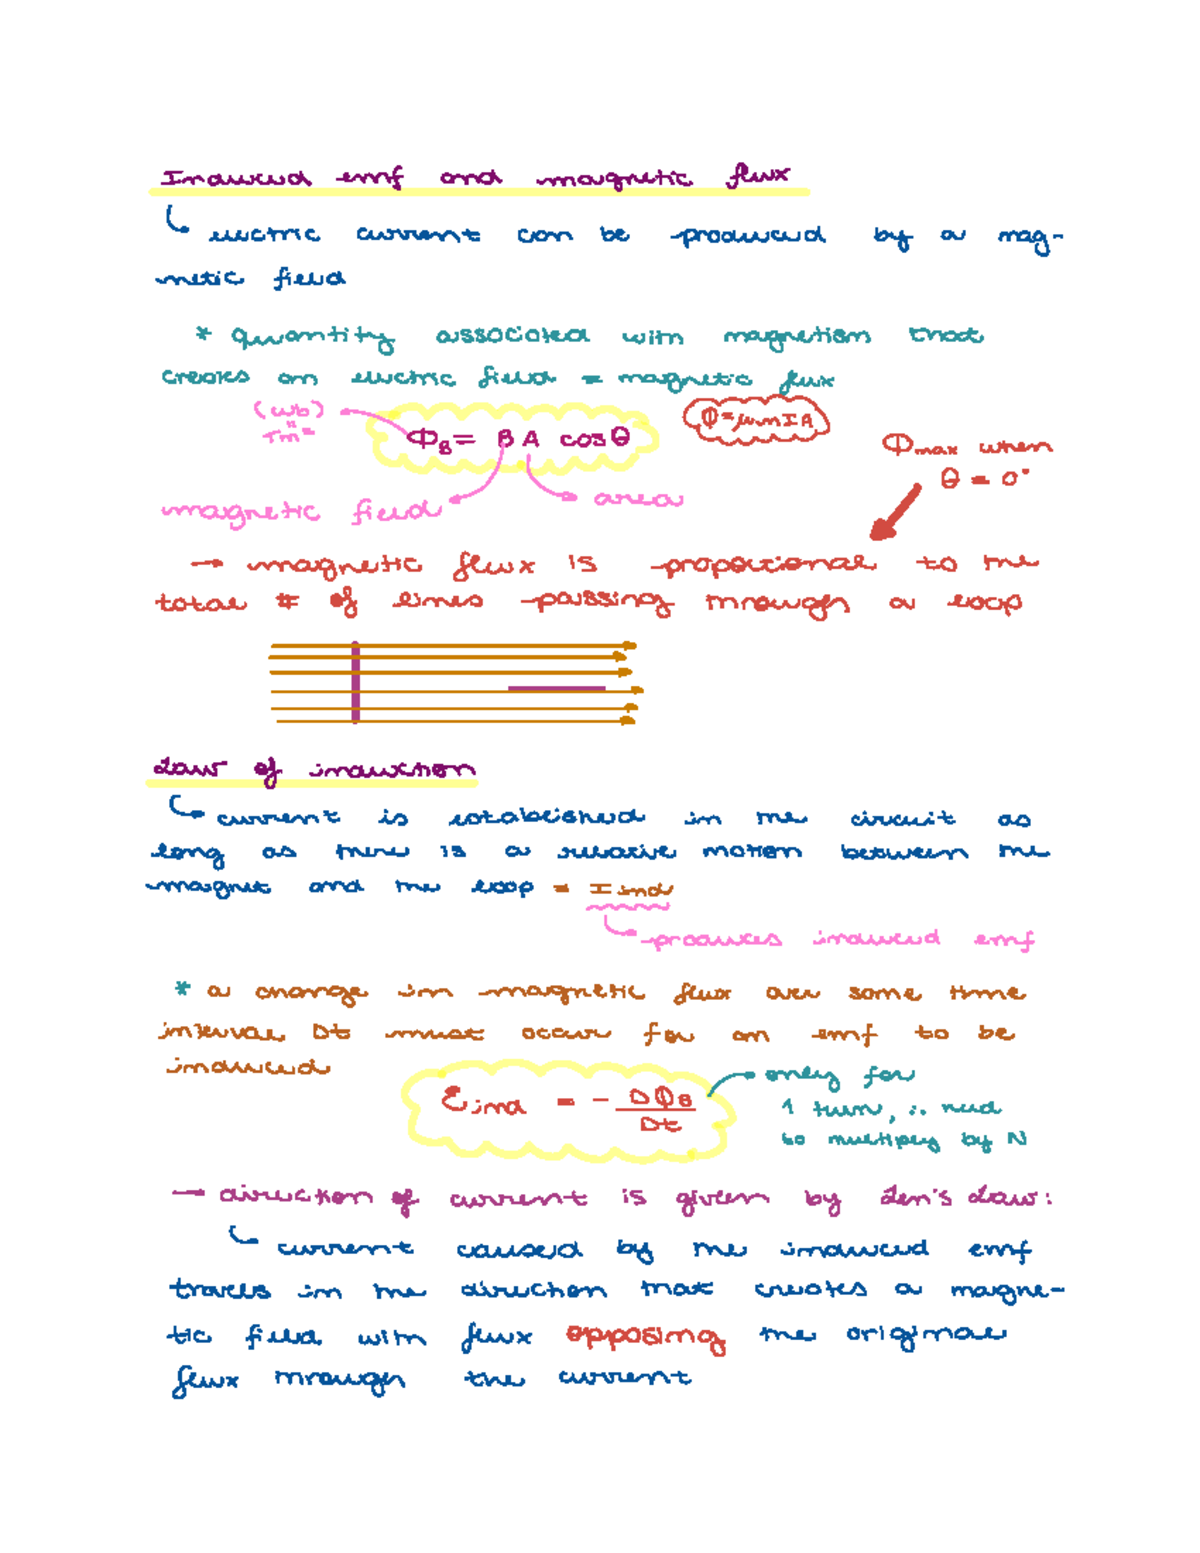 Induced emf and magnetic flux
electric current can be produced by a mag-
netic field
* quantity associated with magnetism that
creates an electric field = magnetic flux
(Wb)
Tm²
Φ_B = BA cosθ
Φ=μnIA
Φmax when
θ = 0°
magnetic field
area
→ magnetic flux is proporcional to the
total # of lines passing through a loop
Law of induction
current is established in the circuit as
long as there is a relative motion between the
magnet and the loop = I ind
produces induced emf
* a change in magnetic flux over some time
interval Δt must occur for an emf to be
induced
Ɛind = - ΔΦ_B
Δt
only for
1 turn, ∴ need
to multiply by N
→ direction of current is given by Len's Law:
current caused by the induced emf
travels in the direction that creates a magne-
tic field with flux opposing the original
flux through the current